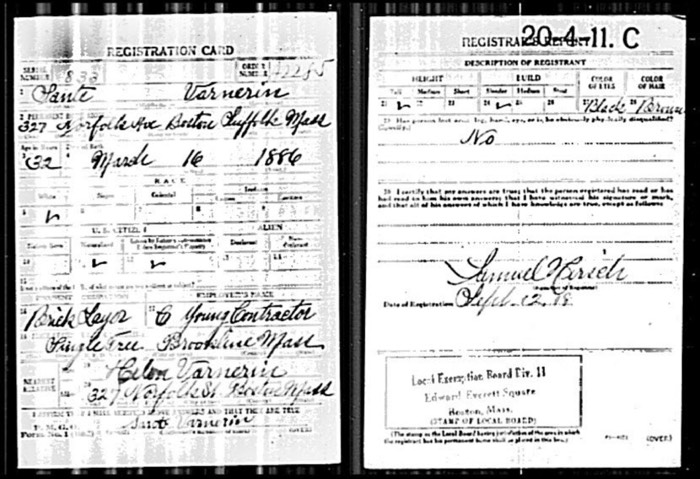 REGISTRATION CARD
SERIAL NUMBER 833 ORDER NUMBER
1 Sante Varnerin
327 Norfolk Ave Boston Suffolk Mass
Age in Years
32 March 16 1886
RACE
White Negro Oriental Indian
5 ✓ 6 7 8 9
U. S. CITIZEN ALIEN
Native Born Naturalized Declarant Non-Declarant
10 11 ✓ 12 ✓ 13 14
15
PRESENT OCCUPATION EMPLOYER'S NAME
16 Brick Layor 17 C Young Contractor
Single Tree Brookline Mass
NEAREST RELATIVE
Helen Varnerin
327 Norfolk St Boston Mass
I AFFIRM THAT I HAVE VERIFIED ABOVE ANSWERS AND THAT THEY ARE TRUE
P. M. G. O.
Form No. 1 Varnerin (OVER)
REGISTRAR'S REPORT
20-4-11. C
DESCRIPTION OF REGISTRANT
HEIGHT BUILD COLOR OF EYES COLOR OF HAIR
Tall Medium Short Slender Medium Stout
21 ✓ 22 23 24 ✓ 25 26 27 Black 28 Brown
29 Has person lost arm, leg, hand, eye, or is he obviously physically disqualified? (Specify.)
No
30 I certify that my answers are true; that the person registered has read or has
had read to him his own answers; that I have witnessed his signature or mark,
and that all of his answers of which I have knowledge are true, except as follows:
Samuel Hirsch
Date of Registration Sept. 12, 18
Local Exemption Board Div. 11
Edward Everett Square
Boston, Mass.
(STAMP OF LOCAL BOARD)
(The stamp of the Local Board having jurisdiction of the area in which
the registrant has his permanent home shall be placed in this box.)
(OVER)